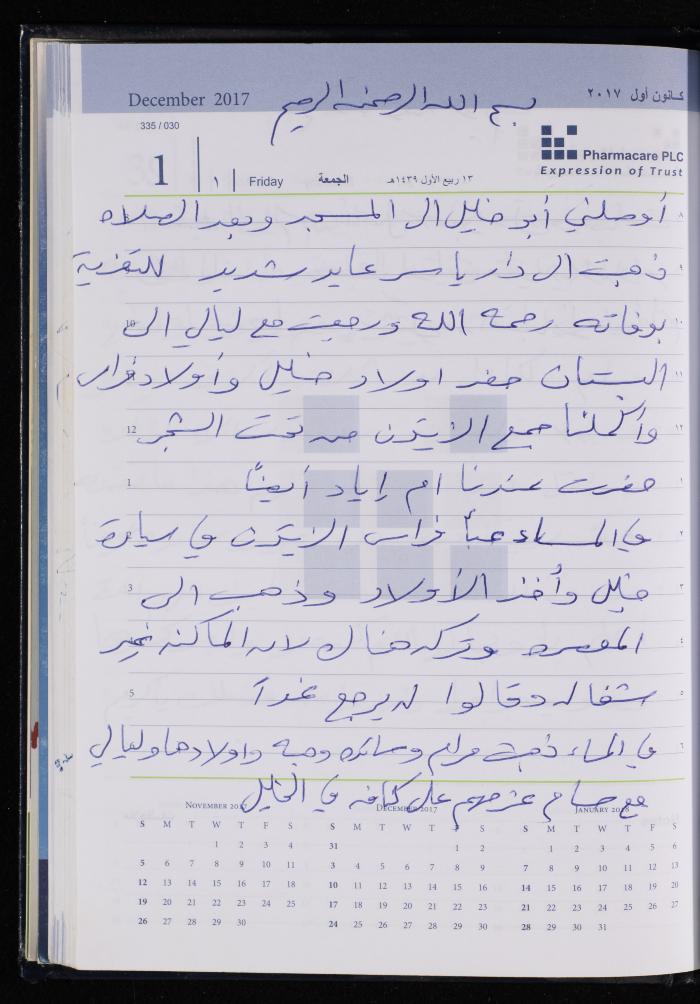 December 2017
بسم الله الرحمن الرحيم
كانون أول ٢٠١٧
335 / 030
1
١
Friday
الجمعة
١٣ ربيع الأول ١٤٣٩هـ
Pharmacare PLC
Expression of Trust
أوصلني أبو خليل الى المسجد وبعد الصلاه
ذهبت الى دار ياسر عايد شديد للتعزية
بوفاته رحمه الله ورجعت مع ليالي الى
البستان حضر اولاد خليل وأولاد فراس
وأكملنا جمع الزيتون من تحت الشجر
حضرت عندنا ام إياد أيضاً
في المساء عبأ فراس الزيتون في سيارة
خليل وأخذ الأولاد وذهب الى
المعصره وتركه هناك لان الماكنه غير
شغاله وقالوا له يرجع غداً
في المساء ذهبت مرام وسائده وهبه واولادها وليالي
مع حسام عزمهم على كنافه في الخليل
November 2017
S M T W T F S
1 2 3 4
5 6 7 8 9 10 11
12 13 14 15 16 17 18
19 20 21 22 23 24 25
26 27 28 29 30
December 2017
S M T W T F S
31 1 2
3 4 5 6 7 8 9
10 11 12 13 14 15 16
17 18 19 20 21 22 23
24 25 26 27 28 29 30
January 2018
S M T W T F S
1 2 3 4 5 6
7 8 9 10 11 12 13
14 15 16 17 18 19 20
21 22 23 24 25 26 27
28 29 30 31